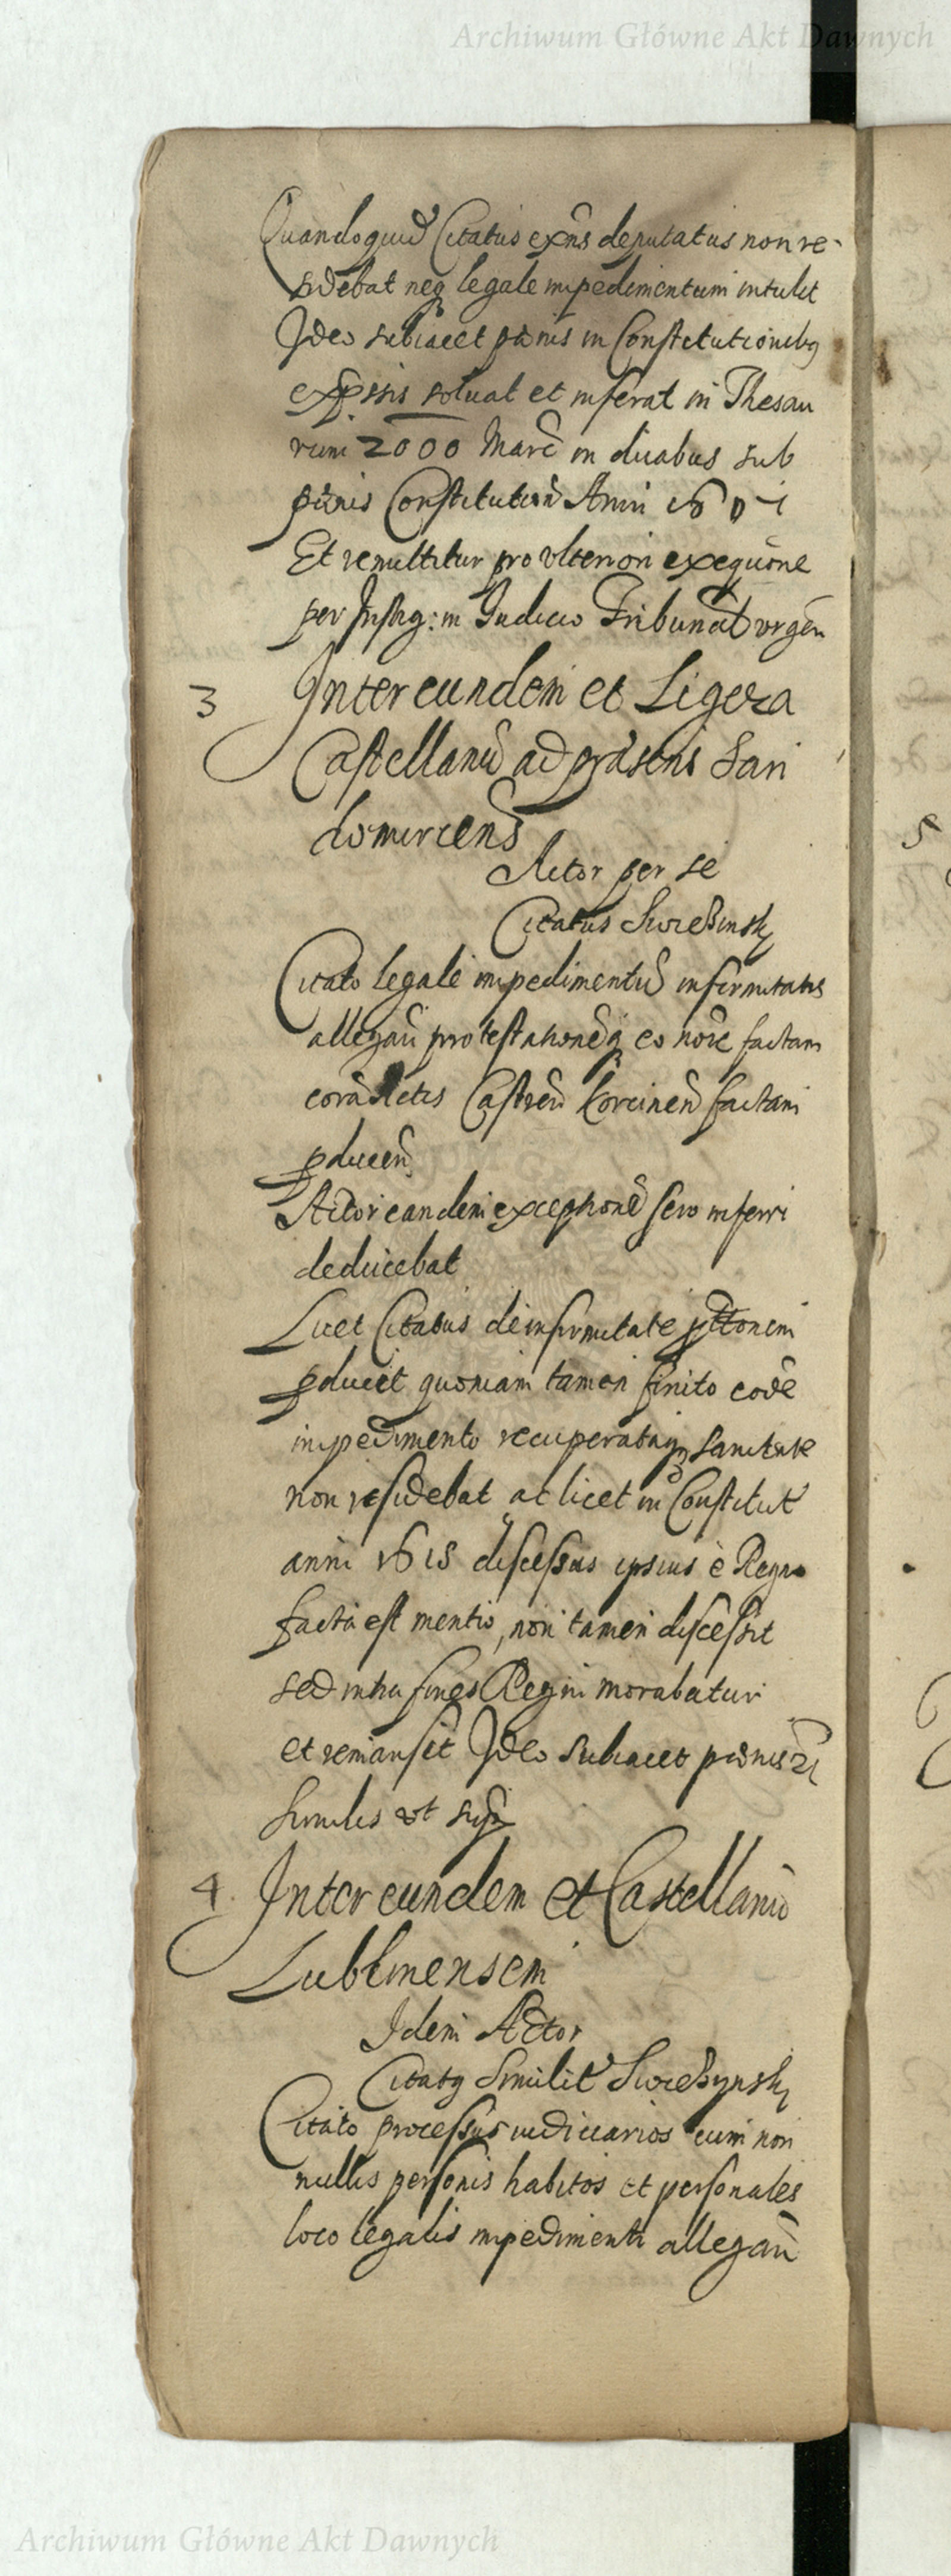 Archiwum Główne Akt Dawnych
Quandoquid Citatus exns deputatus non re-
sidebat neq legale impedimentum intulit
Ideo subiacet pænis in Constitutionibq
exp̃ssis soluat et inferat in Thesau
rum 2000 Marc in duabus sub
pænis Constitution Anni
Et remittitur pro vlteriori exequõne
per Instig: in Iudicio Tribunal vrgen
3 Inter eundem et Ligeza
Castellanũ ad præsens San
domiriens
Actor per se
Citatus
Citato legale impedimentũ infirmitatis
allegañ protestationẽq eo noĩe factam
corã Actis Castreñ Korcineñ factam
pduceñ
Actor eandem exceptionẽ sero inferri
deducebat
Licet Citatus de infirmitate pttonem
pducit quoniam tamen finito eodẽ
impedimento recuperataq sanitate
non residebat ac licet in Constitut
anni discessus ipsius è Regno
facta est mentio, non tamen discessit
sed intra fines Regni morabatur
et remansit Ideo subiacet pænis
similis vt sup
4. Inter eundem et Castellanũ
Lublinensem
Idem Actor
Citatq similit
Citato processus iudiciarios cum non
nullis personis habitos et personales
loco legalis impedimenti allegañ
5
Archiwum Główne Akt Dawnych